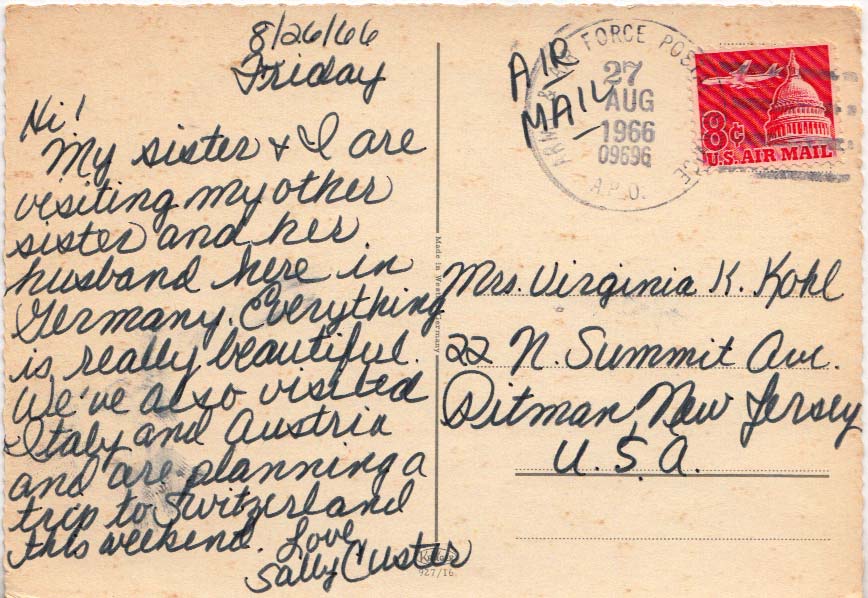 8/26/66
Friday
Hi!
My sister & I are
visiting my other
sister and her
husband here in
Germany. Everything
is really beautiful.
We've also visited
Italy and Austria
and are planning a
trip to Switzerland
this weekend. Love
Sally Custer
AIR
MAIL
ARMY & AIR FORCE POSTAL SERVICE
27
AUG
1966
09696
A.P.O.
8¢
U.S. AIR MAIL
Made in Western Germany
Mrs. Virginia K. Kohl
22 N. Summit Ave.
Pitman, New Jersey
U.S.A.
Krüger
927/16